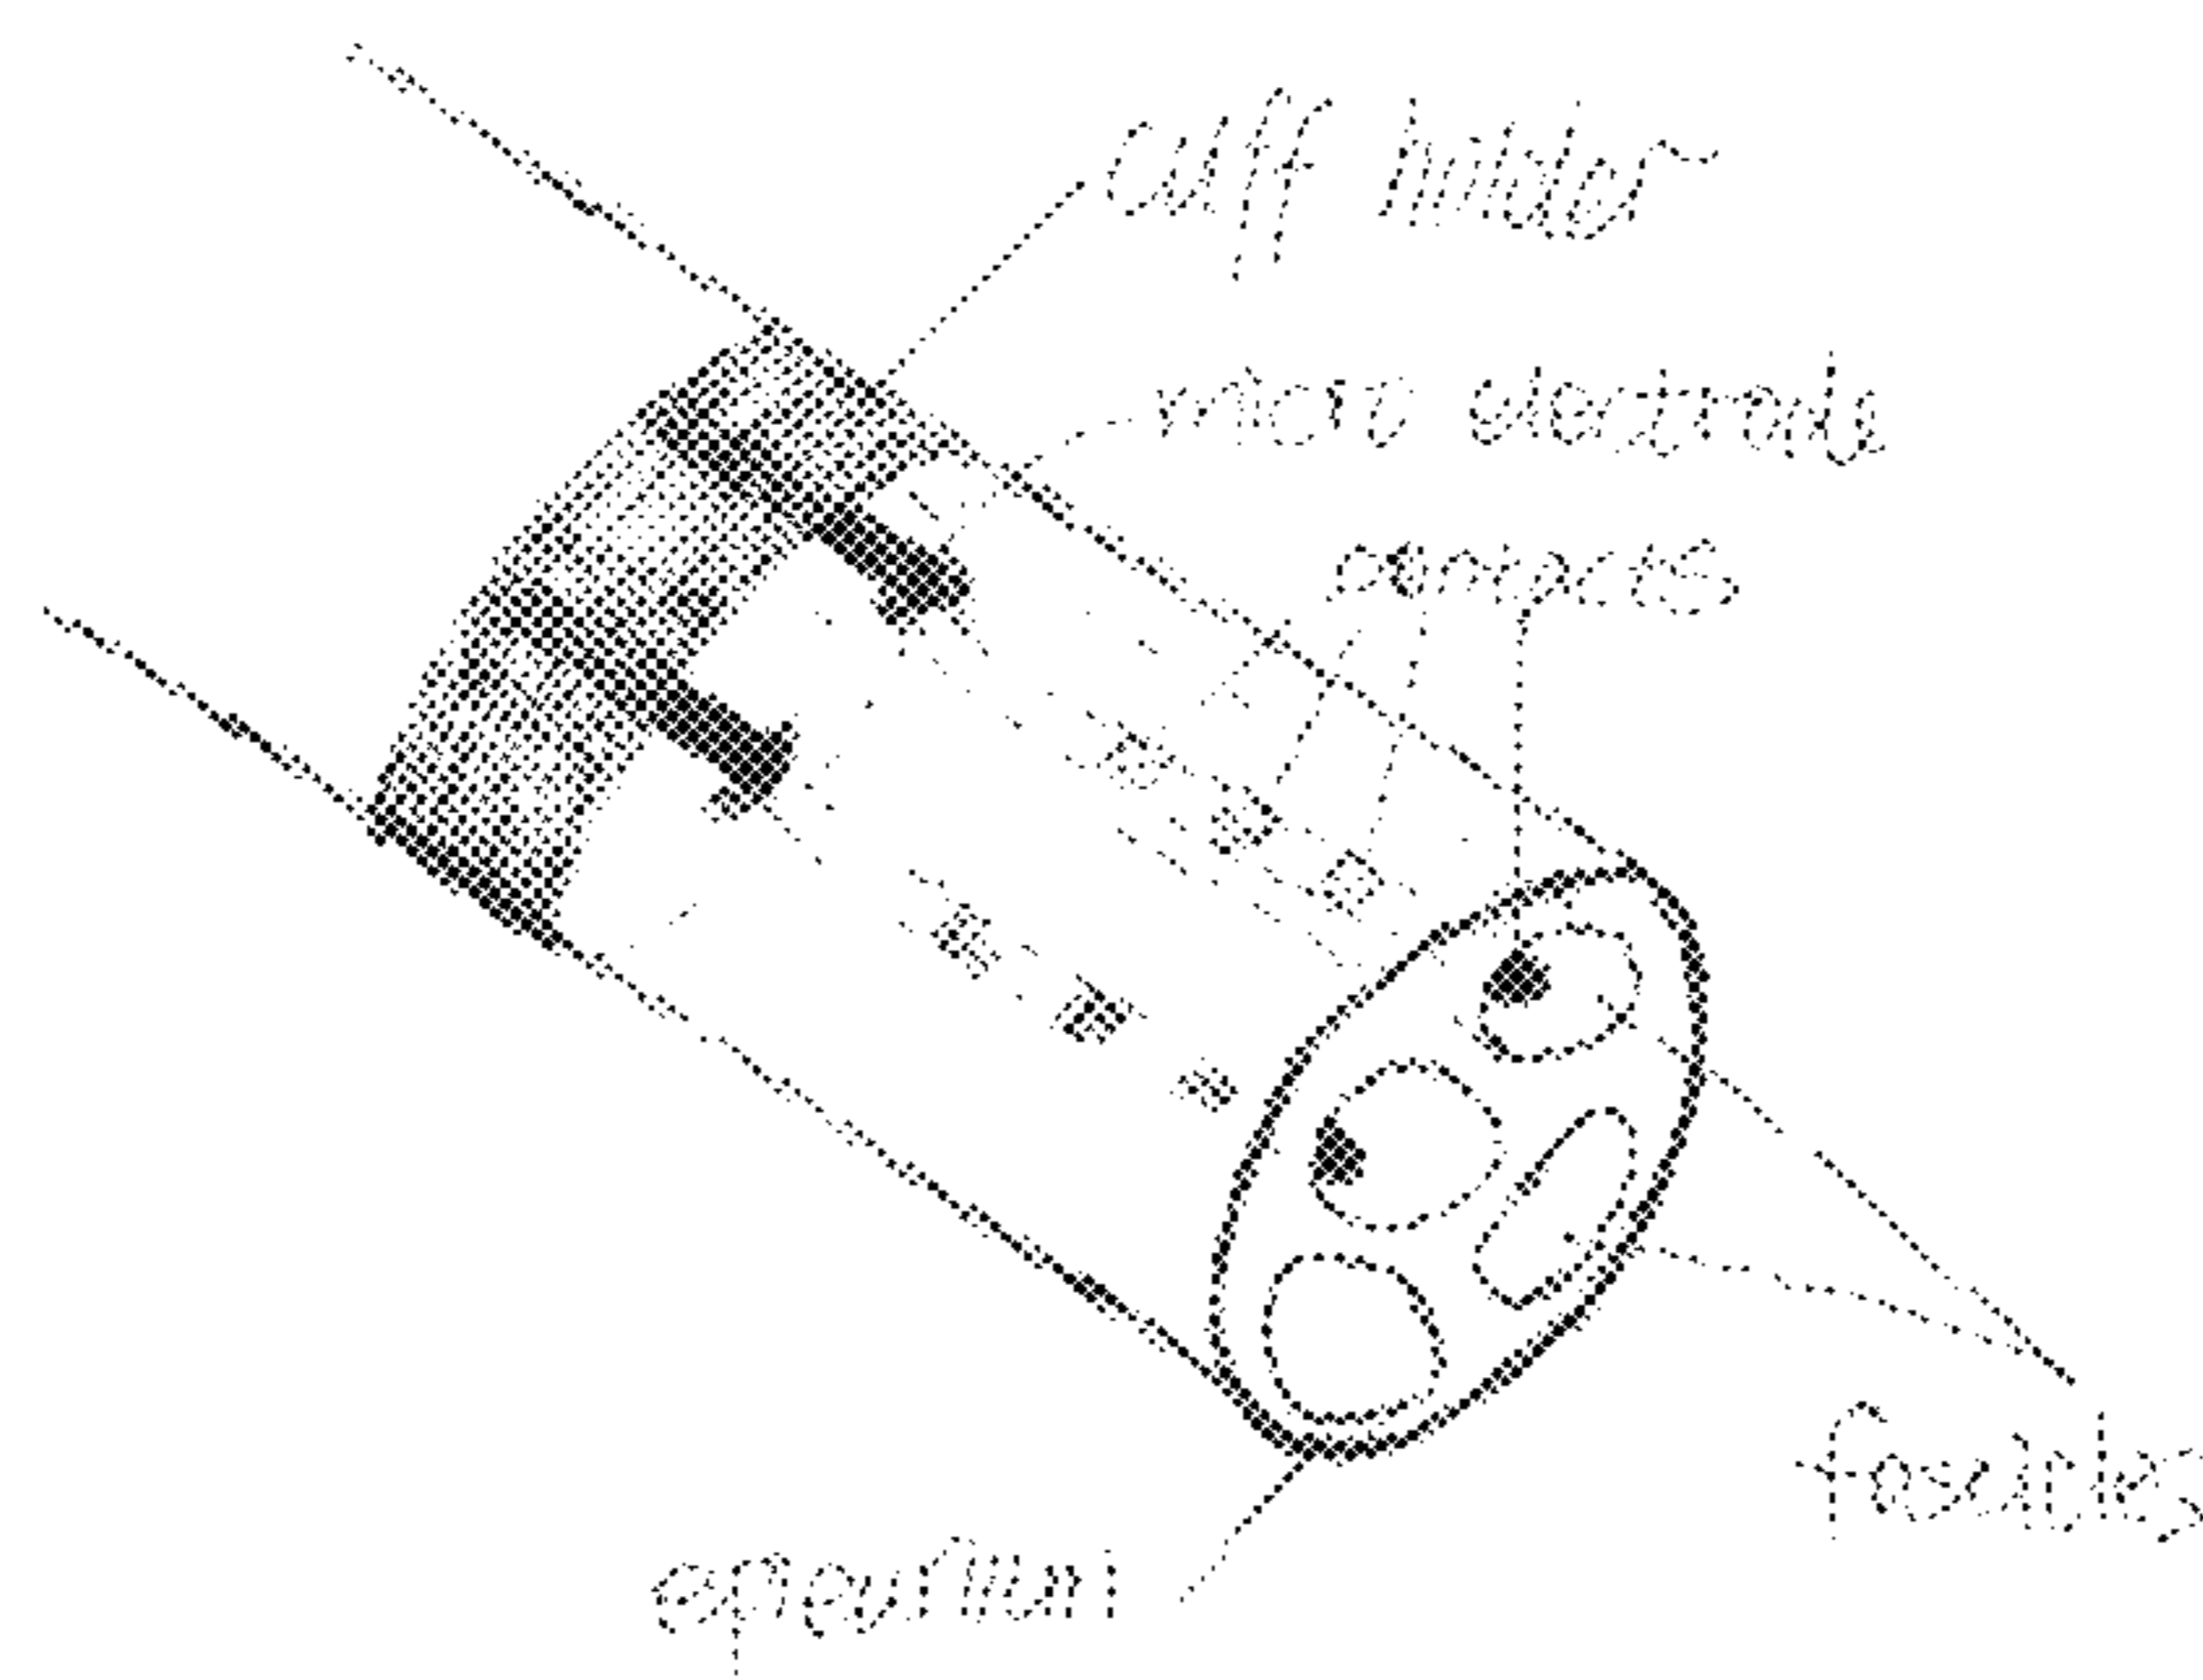 cuff holder
micro electrode
contacts
fascicles
epineurium